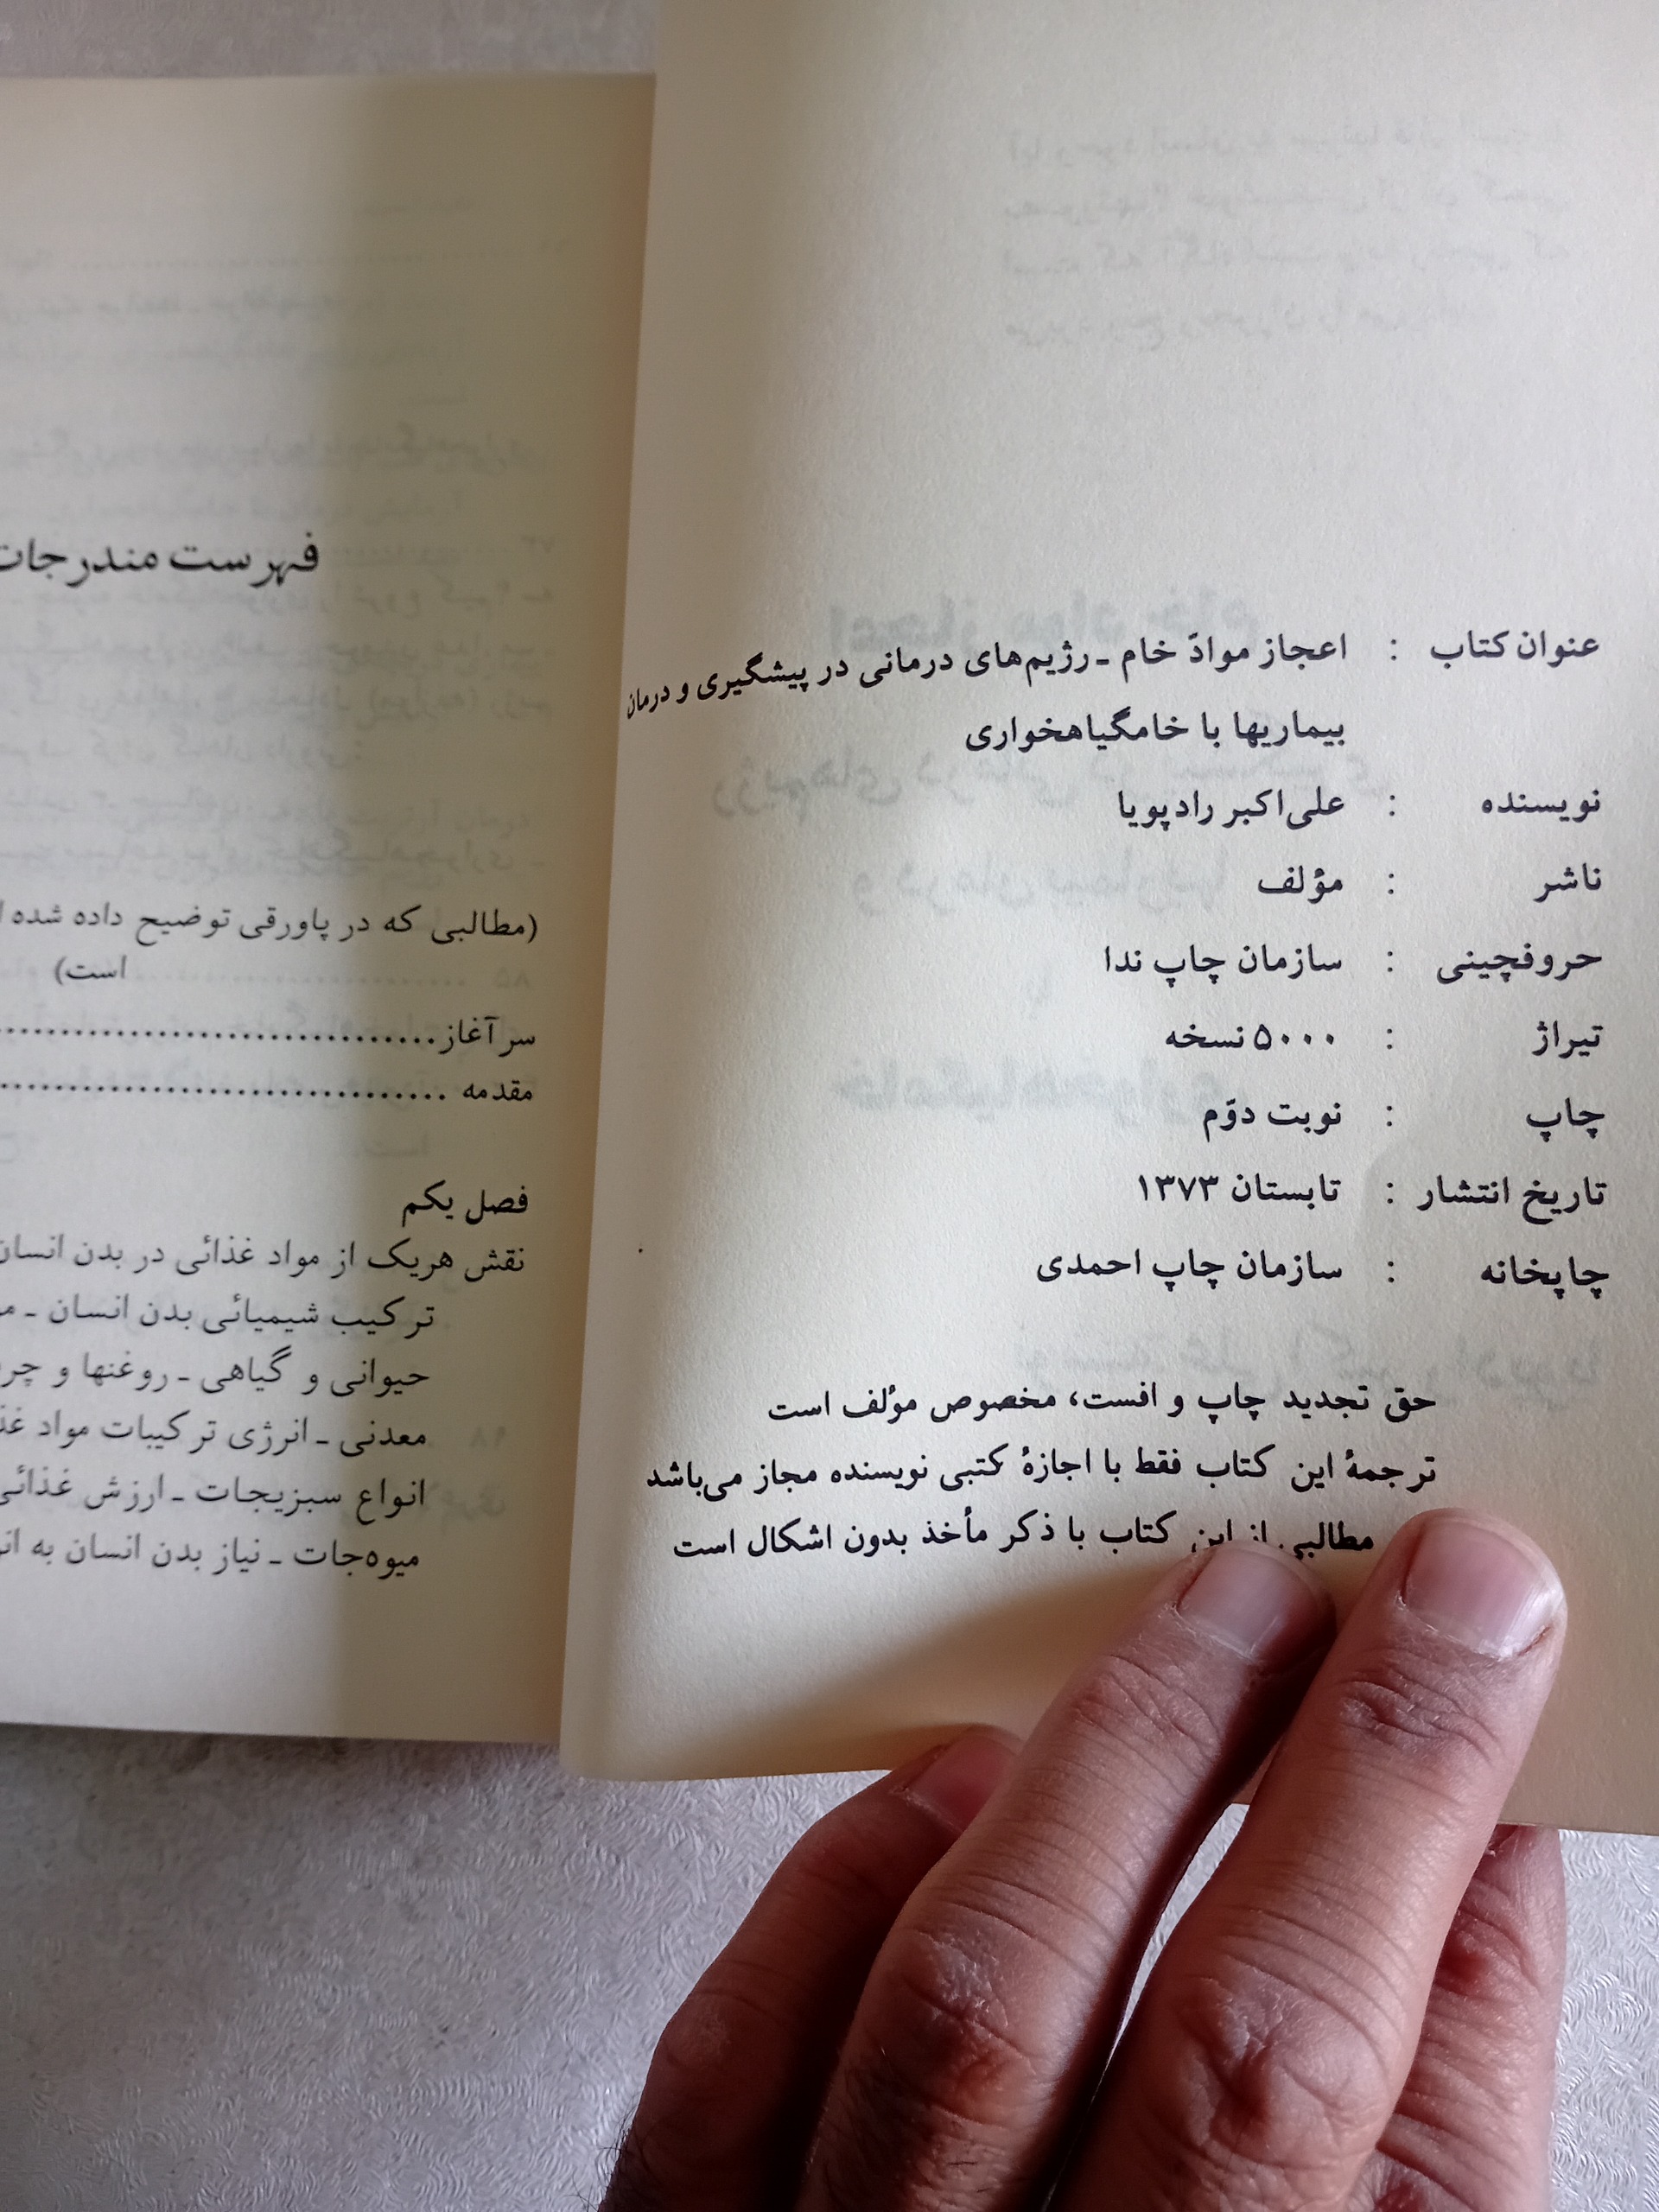 عنوان کتاب : اعجاز موادّ خام ـ رژیم‌های درمانی در پیشگیری و درمان
بیماریها با خامگیاهخواری
نویسنده : علی‌اکبر رادپویا
ناشر : مؤلف
حروفچینی : سازمان چاپ ندا
تیراژ : ۵۰۰۰ نسخه
چاپ : نوبت دوّم
تاریخ انتشار : تابستان ۱۳۷۳
چاپخانه : سازمان چاپ احمدی
حق تجدید چاپ و افست، مخصوص مؤلف است
ترجمهٔ این کتاب فقط با اجازهٔ کتبی نویسنده مجاز می‌باشد
مطالبی از این کتاب با ذکر مأخذ بدون اشکال است
فهرست مندرجات
(مطالبی که در پاورقی توضیح داده شده
است)
سرآغاز..............................
مقدمه ..............................
فصل یکم
نقش هریک از مواد غذائی در بدن انسان
ترکیب شیمیائی بدن انسان ـ
حیوانی و گیاهی ـ روغنها و
معدنی ـ انرژی ترکیبات مواد
انواع سبزیجات ـ ارزش غذائی
میوه‌جات ـ نیاز بدن انسان به